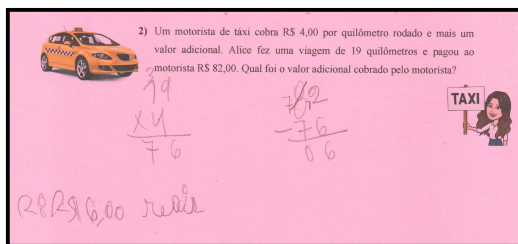 2) Um motorista de táxi cobra R$ 4,00 por quilômetro rodado e mais um
valor adicional. Alice fez uma viagem de 19 quilômetros e pagou ao
motorista R$ 82,00. Qual foi o valor adicional cobrado pelo motorista?
TAXI
3
19
x4
76
7 82
-76
06
R: R$ 6,00 reais